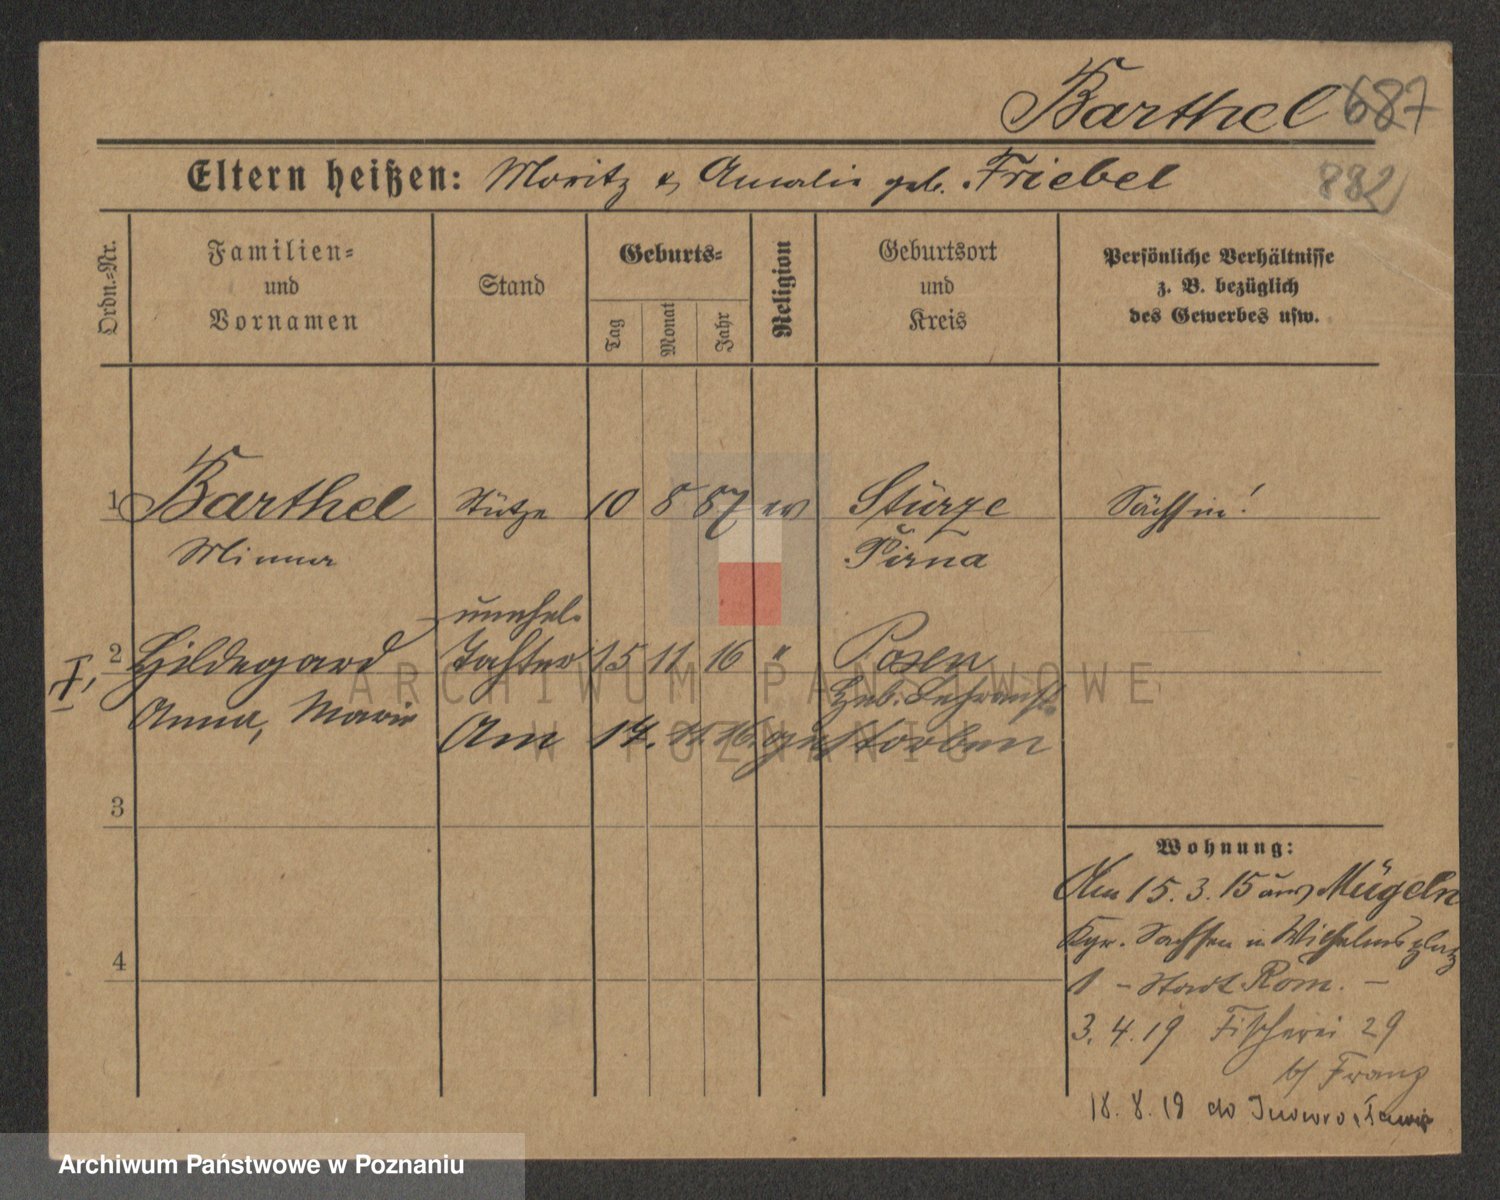 Barthel 687
Eltern heißen: Moritz & Amalie geb. Friebel
882
Ordn.-Nr.
Familien-
und
Vornamen
Stand
Geburts-
Tag
Monat
Jahr
Religion
Geburtsort
und
Kreis
Persönliche Verhältnisse
z. B. bezüglich
des Gewerbes usw.
1 Barthel Stütze 10 8 87 ev Stürze Sächsin!
Minna Pirna
unehel.
2 Hildegard Tochter 15 11 16 " Posen
I,
Anna, Marie Heb. Lehranst.
Am 17. 11. 16. gestorben
3
4
Wohnung:
Am 15. 3. 15 aus Mügeln
Kgr. Sachsen n Wilhelmsplatz
1 - Stadt Rom. -
3. 4. 19 Fischerei 29
b/ Franz
18. 8. 19 do Inowrocławia
ARCHIWUM PAŃSTWOWE
W POZNANIU
Archiwum Państwowe w Poznaniu